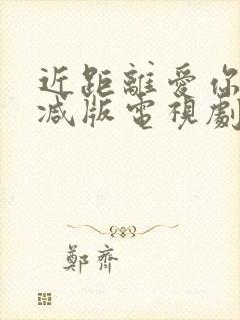 近距離愛你
减版電視劇
鄭齊